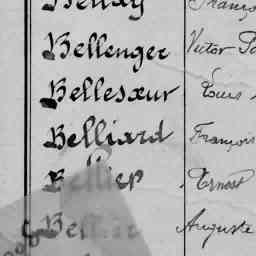 Bellay Franço
Bellenger Victor Pa
Bellesœur Louis
Belliard François
Bellier Ernest
Bellier Auguste